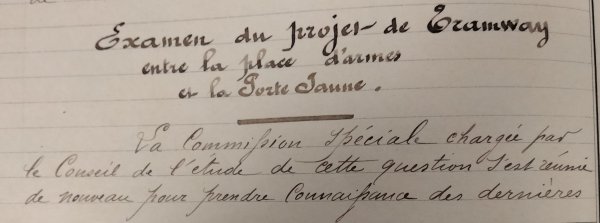 Examen du projet de Tramway
entre la place d'armes
et la Porte Jaune.
La Commission Spéciale chargée par
le Conseil de l'étude de cette question s'est réunie
de nouveau pour prendre connaissance des dernières